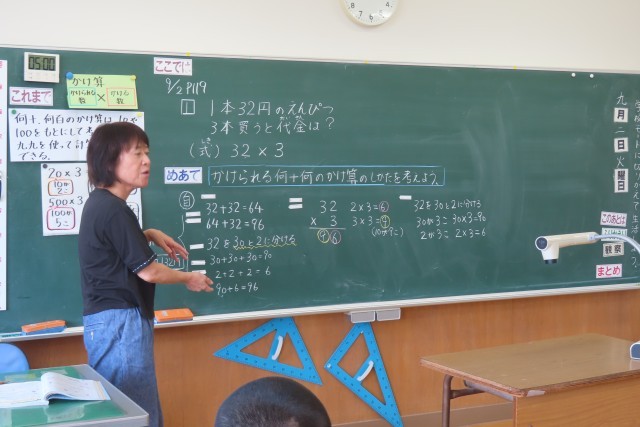 05:00
ここでは
かけ算
かけられる数 × かける数
これまで
何十、何百のかけ算は、10や
100をもとにして
九九を使って計
できる。
20×3
10が
2こ
500×3
100が
5こ
9/2 P119
1 1本32円のえんぴつ
3本買うと代金は?
(式) 32×3
めあて かけられる何十何のかけ算のしかたを考えよう。
自
32+32=64
64+32=96
32を30と2に分ける
30+30+30=90
2+2+2=6
90+6=96
32
×3
96
2×3=6
3×3=9
32を30と2に分ける
30が3こ 30×3=90
2が3こ 2×3=6
九月二日火曜日
このあとは
観察
まとめ